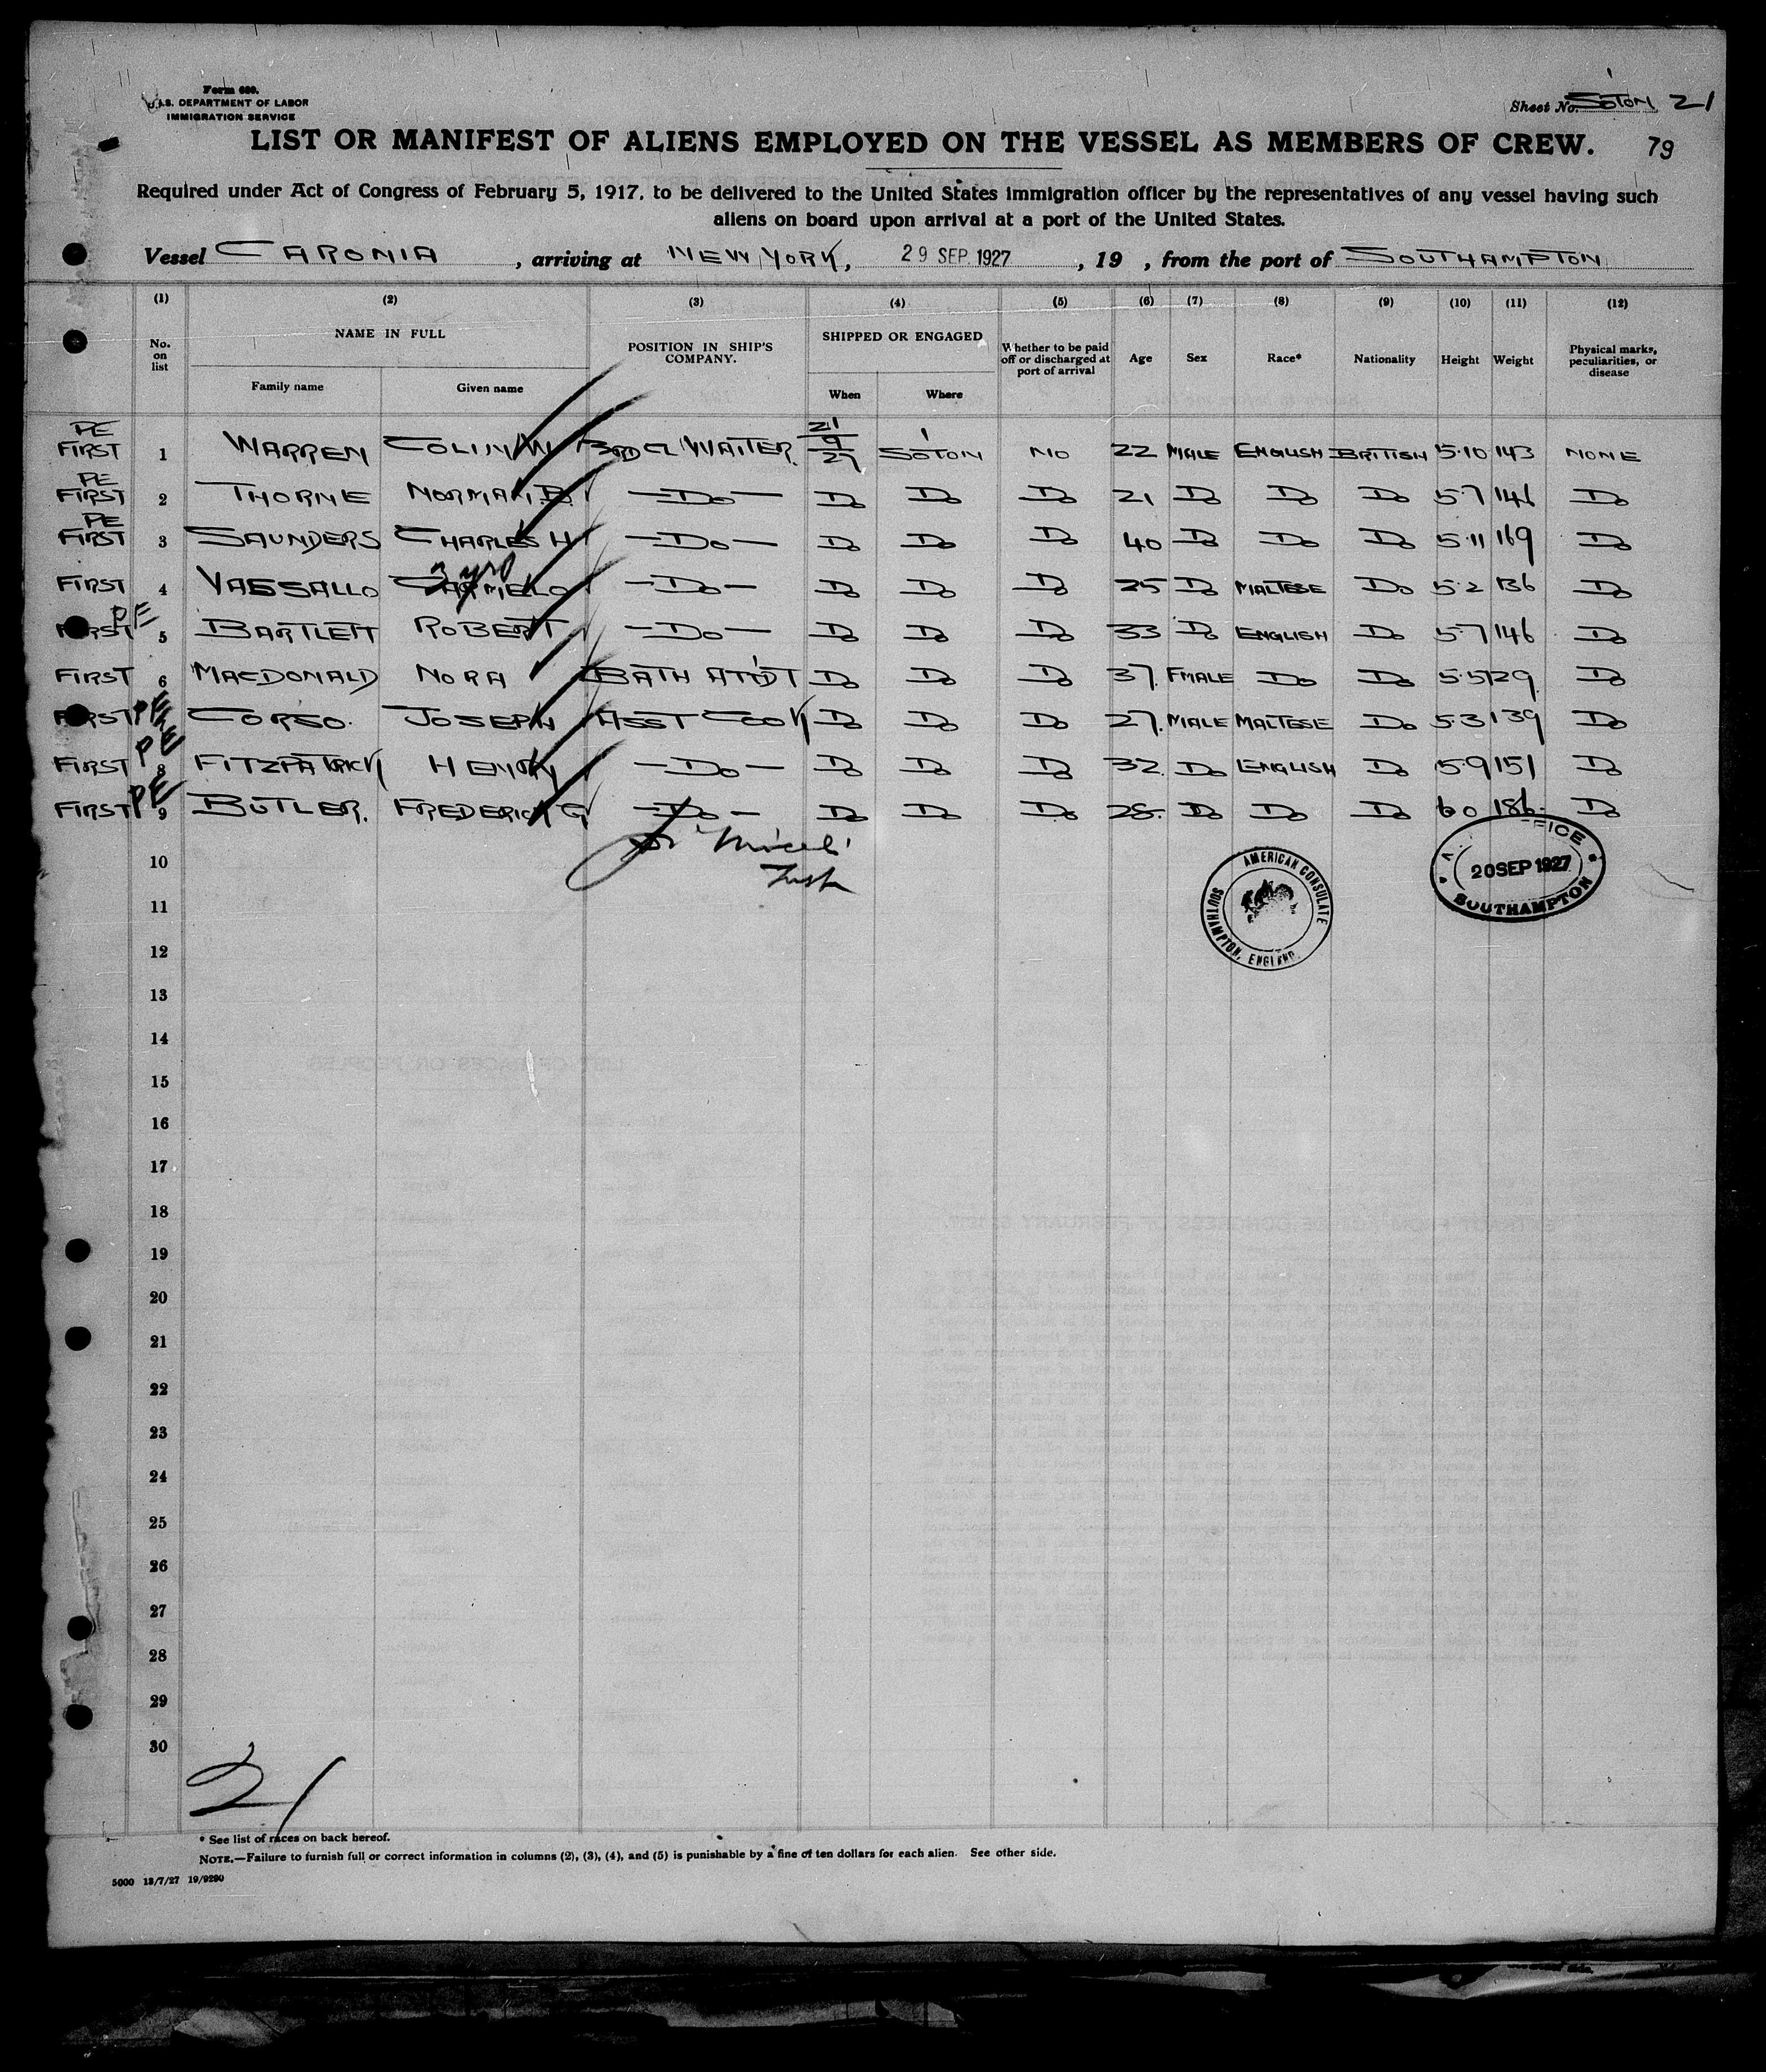 Form 680.
U.S. DEPARTMENT OF LABOR
IMMIGRATION SERVICE
Sheet No. SOTON 21
LIST OR MANIFEST OF ALIENS EMPLOYED ON THE VESSEL AS MEMBERS OF CREW. 79
Required under Act of Congress of February 5, 1917, to be delivered to the United States immigration officer by the representatives of any vessel having such
aliens on board upon arrival at a port of the United States.
Vessel CARONIA, arriving at NEW YORK, 29 SEP. 1927, 19 , from the port of SOUTHAMPTON
(1) (2) (3) (4) (5) (6) (7) (8) (9) (10) (11) (12)
No. on list NAME IN FULL Family name Given name POSITION IN SHIP'S COMPANY. SHIPPED OR ENGAGED When Where Whether to be paid off or discharged at port of arrival Age Sex Race* Nationality Height Weight Physical marks, peculiarities, or disease
PE FIRST 1 WARREN COLIN W 3RD CL WAITER 21/9/27 SO'TON NO 22 MALE ENGLISH BRITISH 5·10 143 NONE
PE FIRST 2 THORNE NORMAN.B. —Do— Do Do Do 21 Do Do Do 5·7 146 Do
PE FIRST 3 SAUNDERS CHARLES H —Do— Do Do Do 40 Do Do Do 5·11 169 Do
3 yrs
FIRST 4 VASSALLO CARMELO —Do— Do Do Do 25 Do MALTESE Do 5·2 136 Do
FIRST PE 5 BARTLETT ROBERT —Do— Do Do Do 33 Do ENGLISH Do 5·7 146 Do
FIRST 6 MACDONALD NORA BATH ATT'DT Do Do Do 37. FMALE Do Do 5·5 129. Do
FIRST PE CORSO. JOSEPH ASST COOK Do Do Do 27. MALE MALTESE Do 5·3 139 Do
FIRST PE 8 FITZPATRICK HENRY —Do— Do Do Do 32. Do ENGLISH Do 5·9 151 Do
FIRST PE 9 BUTLER. FREDERICK G —Do— Do Do Do 28. Do Do Do 6 0 186. Do
10
11
12
13
14
15
16
17
18
19
20
21
22
23
24
25
26
27
28
29
30
AMERICAN CONSULATE
SOUTHAMPTON, ENGLAND.
20 SEP 1927
SOUTHAMPTON
21
* See list of races on back hereof.
NOTE.—Failure to furnish full or correct information in columns (2), (3), (4), and (5) is punishable by a fine of ten dollars for each alien. See other side.
5000 13/7/27 19/9290